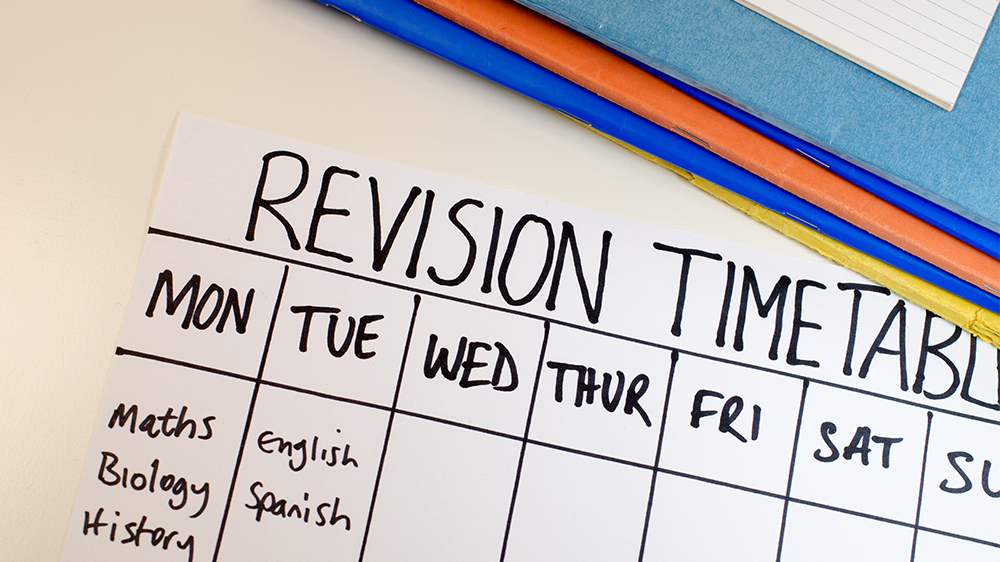 REVISION TIMETABL
MON TUE WED THUR FRI SAT SU
Maths English
Biology Spanish
History